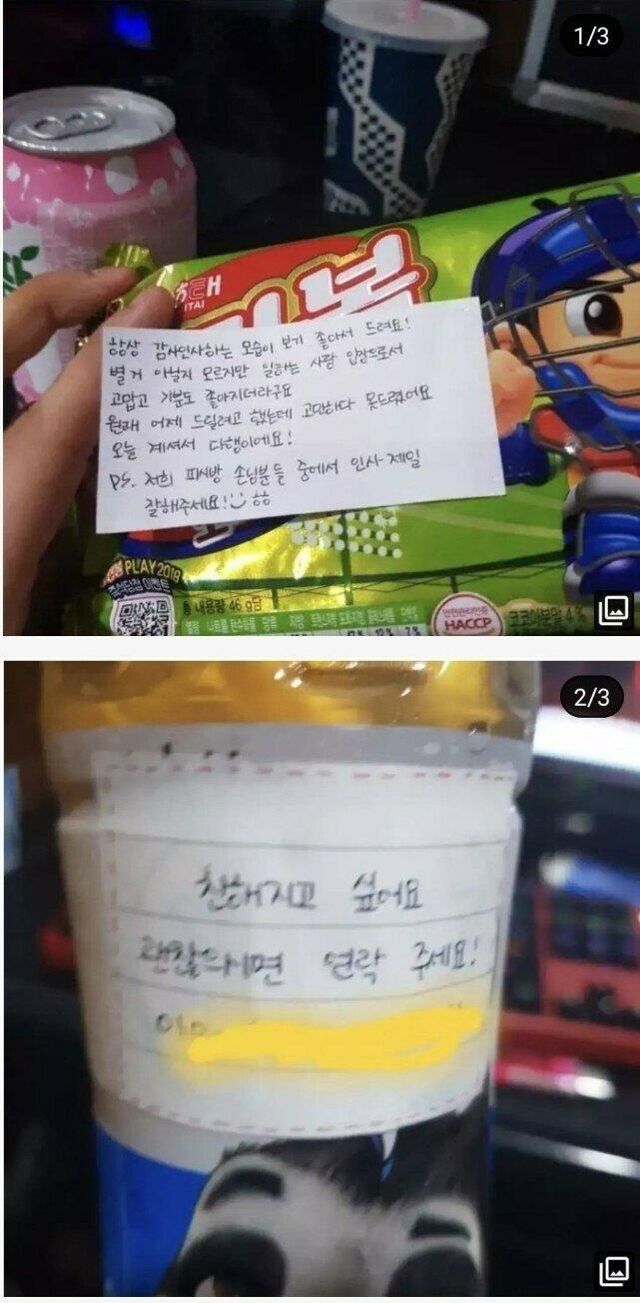 1/3
해태
HTAI
항상 감사인사하는 모습이 보기 좋아서 드려요!
별거 아닐지 모르지만 일하는 사람 입장으로서
고맙고 기분도 좋아지더라구요
원래 어제 드릴려고 했는데 고민하다 못드렸어요
오늘 계셔서 다행이에요!
PS. 저희 피시방 손님분들 중에서 인사 제일
잘해주세요! ㅎㅎ
PLAY 2018
내용량 46 g
HACCP
2/3
친해지고 싶어요
괜찮으시면 연락 주세요!
010